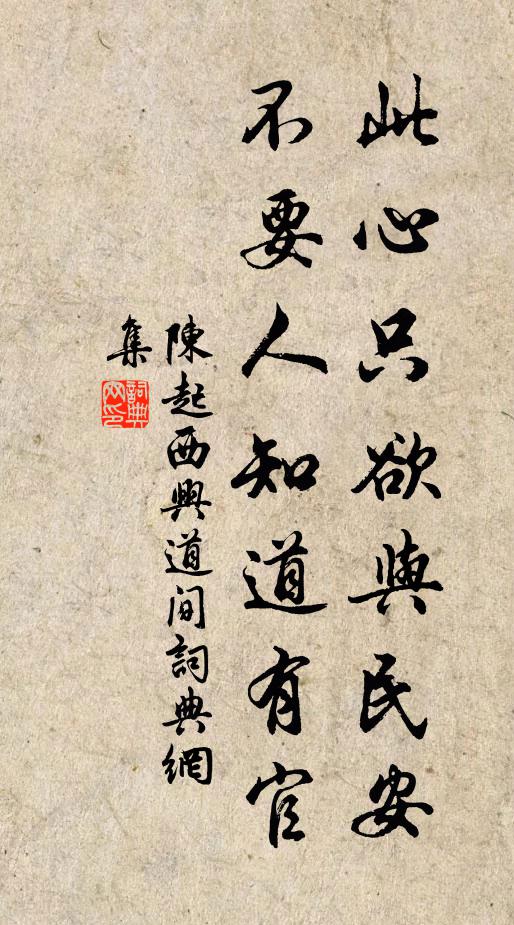 此心只欲與民安
不要人知道有官
陳起西興道間詞典網
集
詞典
网印